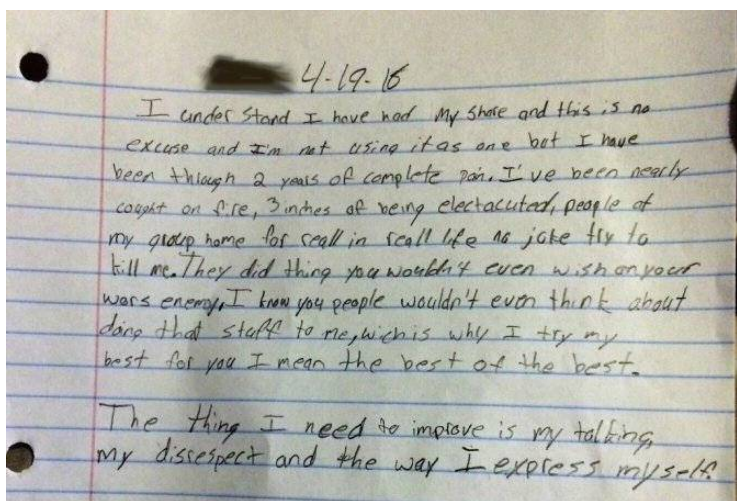 4-19-16
I under stand I have had my share and this is no
excuse and I'm not using it as one but I have
been through 2 years of complete pain. I've been nearly
cought on fire, 3 inches of being electacuted, people at
my group home for reall in reall life no joke try to
kill me. They did thing you wouldn't even wish on your
wors enemy, I know you people wouldn't even think about
doing that stuff to me, wich is why I try my
best for you I mean the best of the best.
The thing I need to improve is my talking,
my disrespect and the way I express myself.